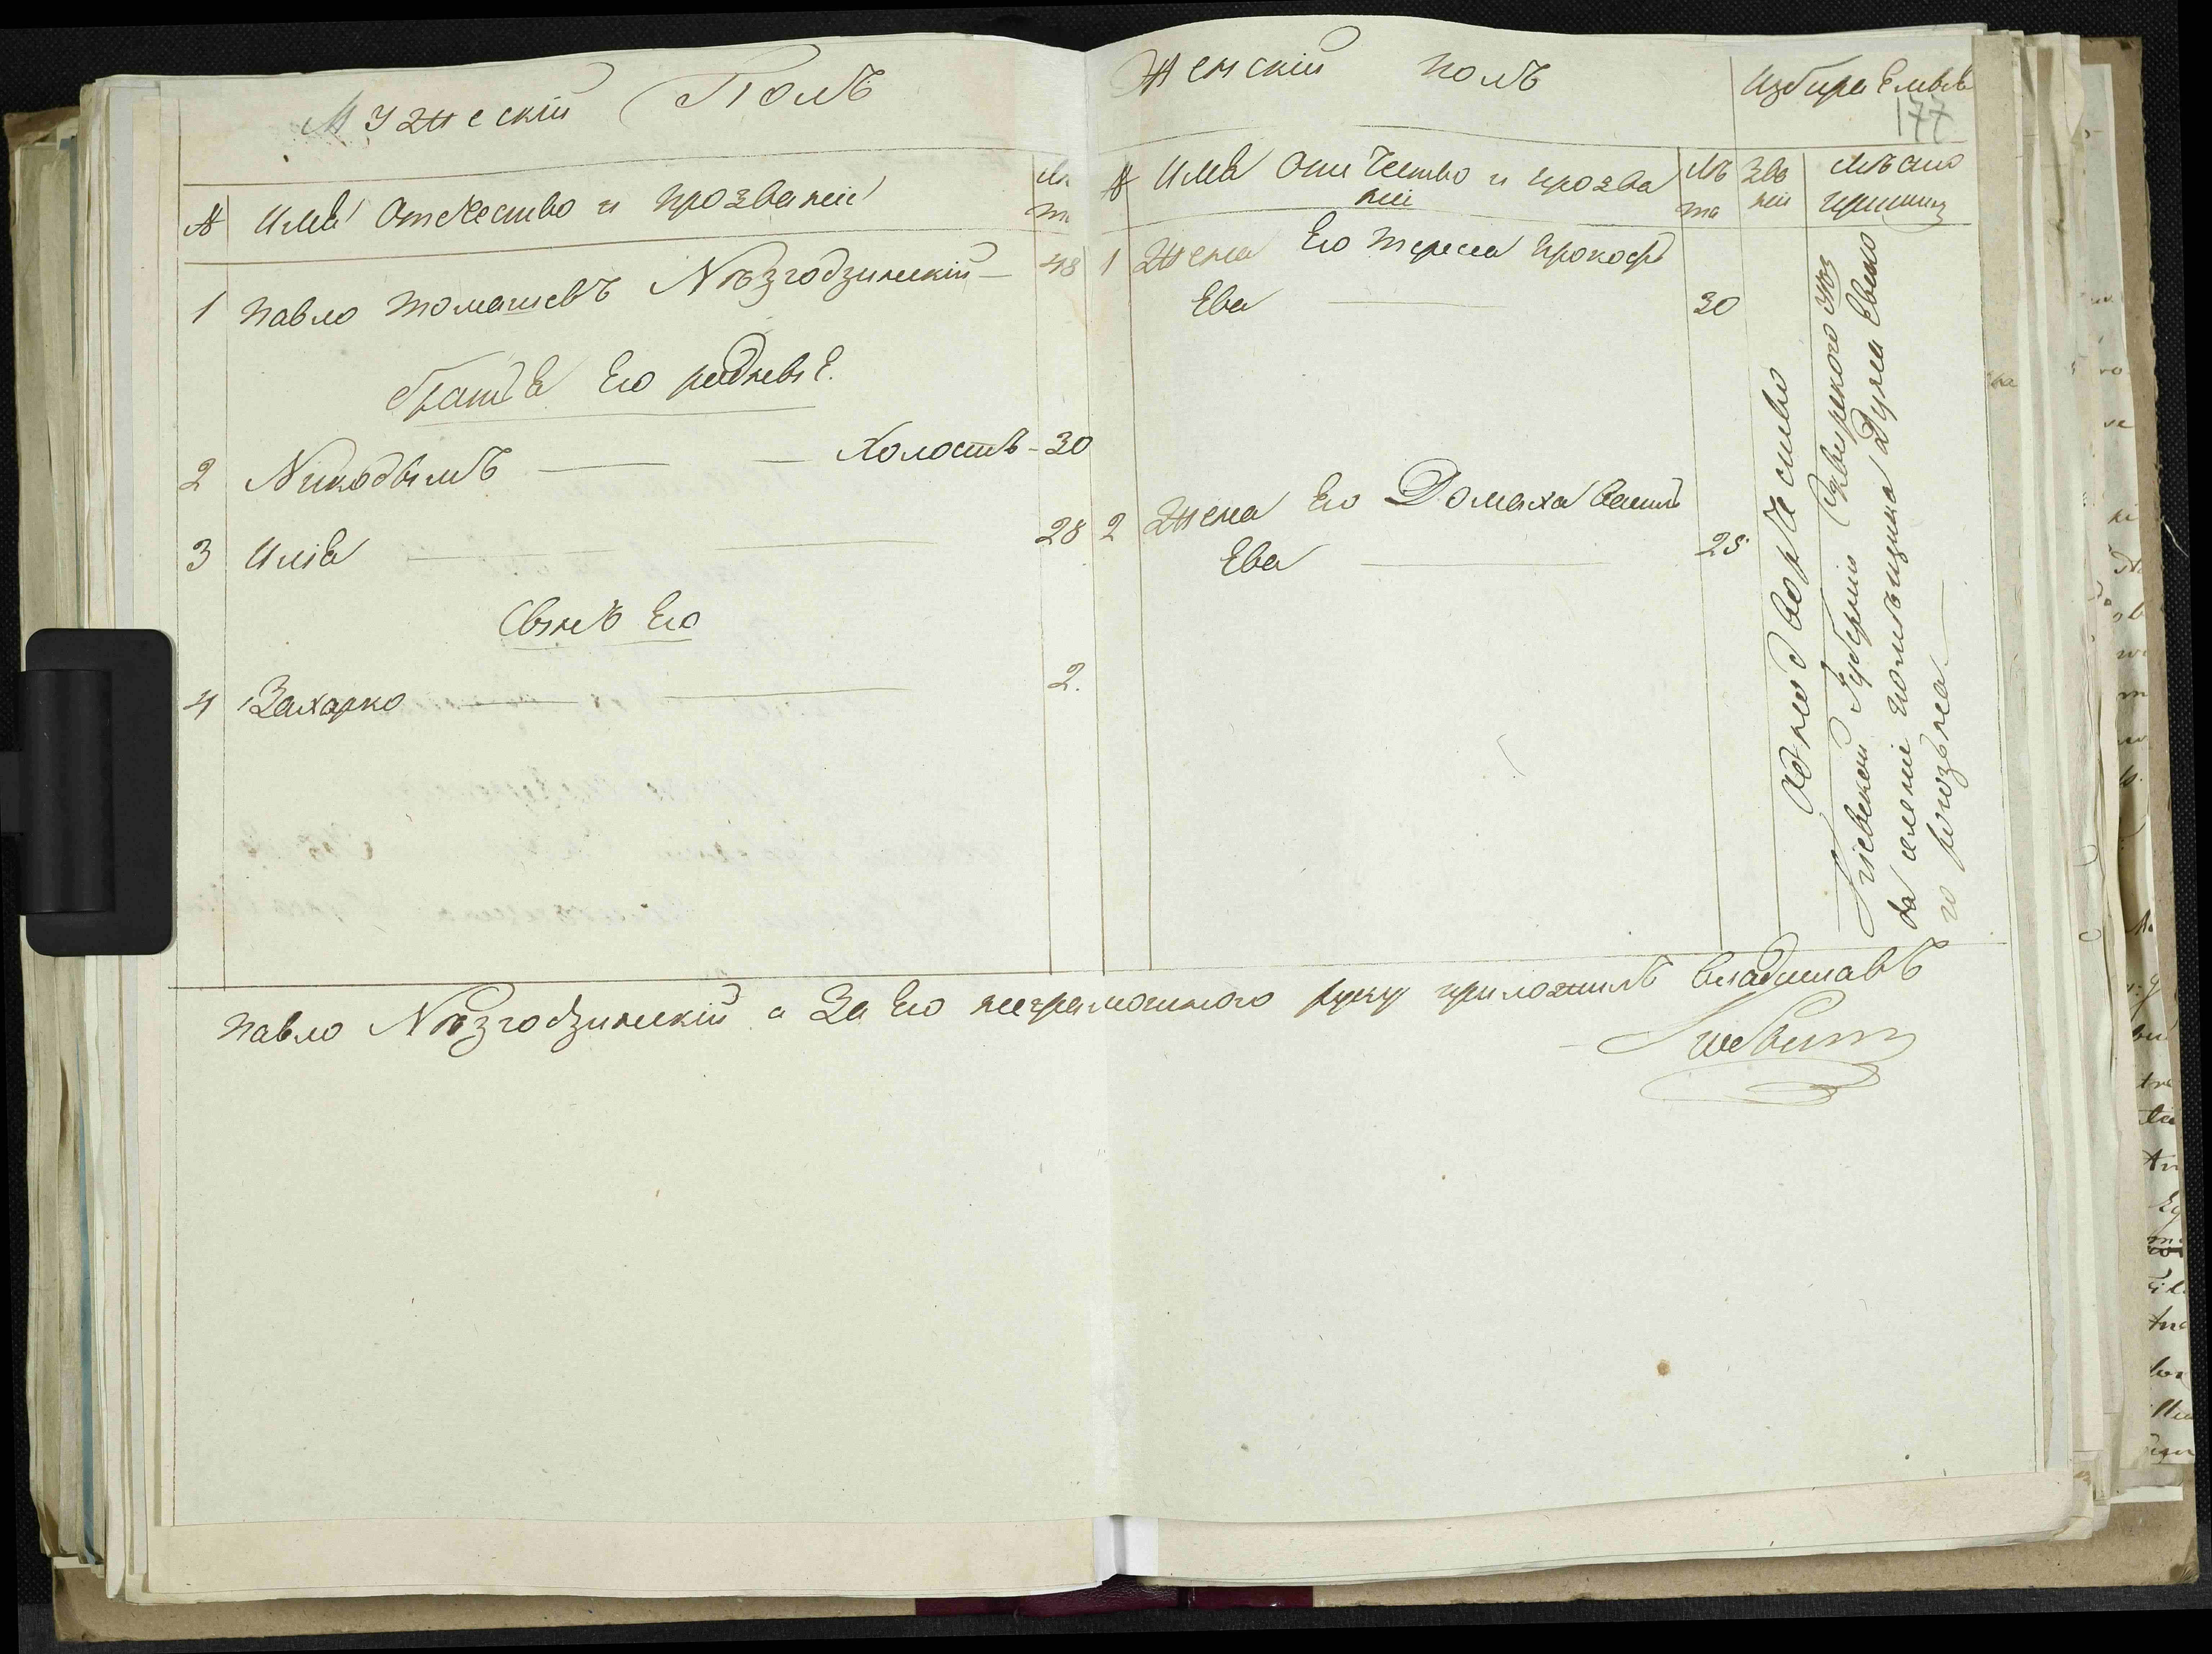 Мужескій Полъ
№ Имя Отечество и прозваніе Лѣ
та
1 Павло Томашевъ Нѣзгодзинскій — 48
Братя Его родные.
2 Никодымъ — — Холостъ - 30
3 Илія — — 28
Сынъ Его
4 Захарко — — 2.
Женскій полъ
Избира Емыя
177
№ Имя Отечество и прозва
ніе
Лѣ
та
Зва
ніе
Мѣсто
1 Жена Его Тереса Прокофь
Ева — 30
2 Жена Его Домаха Василь
Ева — 25
Однодворчество
Кіевской Губерніи Сквирского уез
да селеніе
Павло Нѣзгодзинскій а За Его неграмотного руку приложилъ Владиславъ